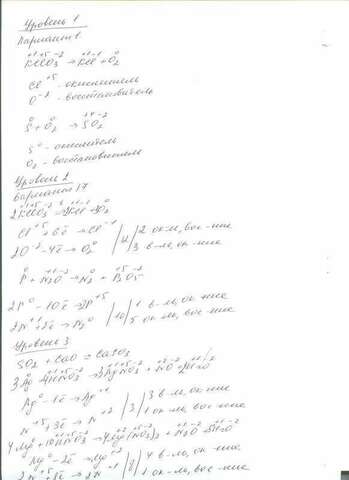 Уровень 1
Вариант 1.
+1 +5 -2 +1 -1 0
KClO3 → KCl + O2
Cl+5 - окислитель
O-2 - восстановитель
0 0 +4 -2
S + O2 → SO2
S0 - окислитель
O2 - восстановитель
Уровень 2
Вариант 17
+1 +5 -2 +1 -1 0
2KClO3 = 2KCl + 3O2
Cl+5 + 6ē → Cl-1 | 2 ок-ль, вос-ние
2O-2 - 4ē → O20 | 12 | 3 в-ль, ок-ние
0 +1 -2 0 +5 -2
P + N2O → N2 + P2O5
2P0 - 10ē → 2P+5 | 1 в-ль, ок-ние
2N+1 + 2ē → N20 | 10 | 5 ок-ль, вос-ние
Уровень 3
SO2 + CaO = CaSO3
3Ag + 4HNO3 → 3AgNO3 + NO + 2H2O
Ag0 - 1ē → Ag+1 | 3 в-ль, ок-ние
N+5 + 3ē → N+2 | 3 | 1 ок-ль, вос-ние
4Mg + 10HNO3 → 4Mg(NO3)2 + N2O + 5H2O
Mg0 - 2ē → Mg+2 | 4 в-ль, ок-ние
2N+5 + 8ē → 2N+1 | 8 | 1 ок-ль, вос-ние